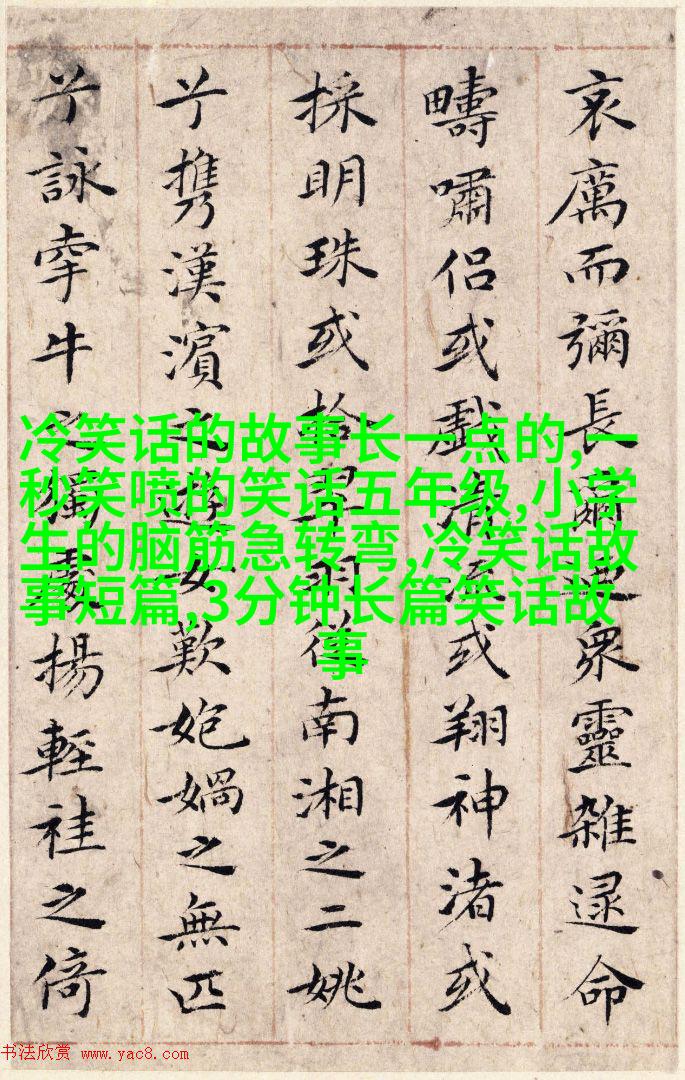 哀厲而彌長爾迺衆靈雜遝命
疇嘯侶或戲清流或翔神渚或
採明珠或拾翠羽從南湘之二姚
兮携漢濱之遊女歎媧之無匹
兮詠牽牛之獨處揚輕袿之倚
冷笑话的故事长一点的,一
秒笑喷的笑话五年级,小学
生的脑筋急转弯,冷笑话故
事短篇,3分钟长篇笑话故
事
书法欣赏 www.yac8.com